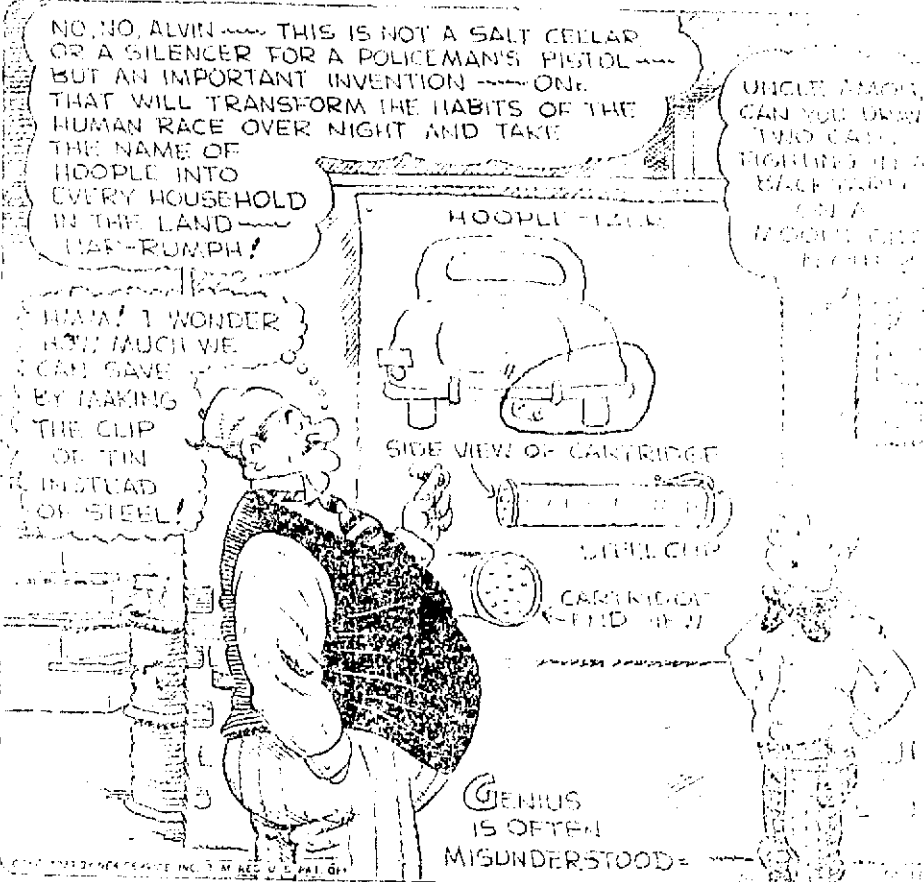 NO, NO, ALVIN ~~ THIS IS NOT A SALT CELLAR
OR A SILENCER FOR A POLICEMAN'S PISTOL ~~
BUT AN IMPORTANT INVENTION ~~ ONE
THAT WILL TRANSFORM THE HABITS OF THE
HUMAN RACE OVER NIGHT AND TAKE
THE NAME OF
HOOPLE INTO
EVERY HOUSEHOLD
IN THE LAND ~~
HAR-RUMPH!
UNCLE AMOS,
CAN YOU DRAW
TWO CATS
FIGHTING IN A
BACKYARD
ON A
HM-M! I WONDER
HOW MUCH WE
CAN SAVE
BY MAKING
THE CLIP
OF TIN
INSTEAD
OF STEEL!
HOOPLE
SIDE VIEW OF CARTRIDGE
STEEL CLIP
CARTRIDGE
END VIEW
GENIUS
IS OFTEN
MISUNDERSTOOD=
SERVICE INC. T. M. REG. U. S. PAT. OFF.